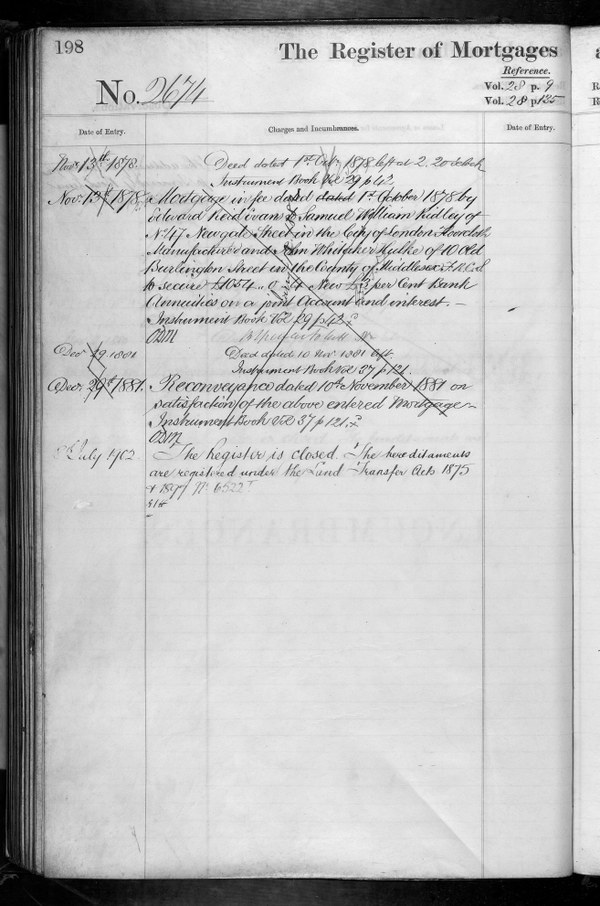 198
The Register of Mortgages
Reference.
No. 2674
Vol. 28 p. 9
Vol. 28 p. 135
Date of Entry.
Charges and Incumbrances.
Date of Entry.
Nov. 13th 1878.
Deed dated 1st Oct. 1878 left at 2.20 o'clock
Instrument Book Vol 29 p 42
Nov. 13th 1878.
Mortgage in fee dated dated 1st October 1878 by
Edward Reid Evan to Samuel William Ridley of
No 47 Newgate Street in the City of London Floorcloth
Manufacturer and John Whitaker Hulke of 10 Old
Burlington Street in the County of Middlesex F.R.C.S.
to secure £1054 .. 0 .. 4 New £3 per Cent Bank
Annuities on a joint Account and interest. —
Instrument Book Vol 29 p. 42.
Dec 29 1881
Deed dated 10 Nov 1881 left
Instrument Book Vol 37 p 121.
Dec. 29th 1881.
Reconveyance dated 10th November 1881 on
satisfaction of the above entered Mortgage —
Instrument Book Vol 37 p 121.
July 1902
The Register is closed. The hereditaments
are registered under the Land Transfer Acts 1875
& 1897 No 6522